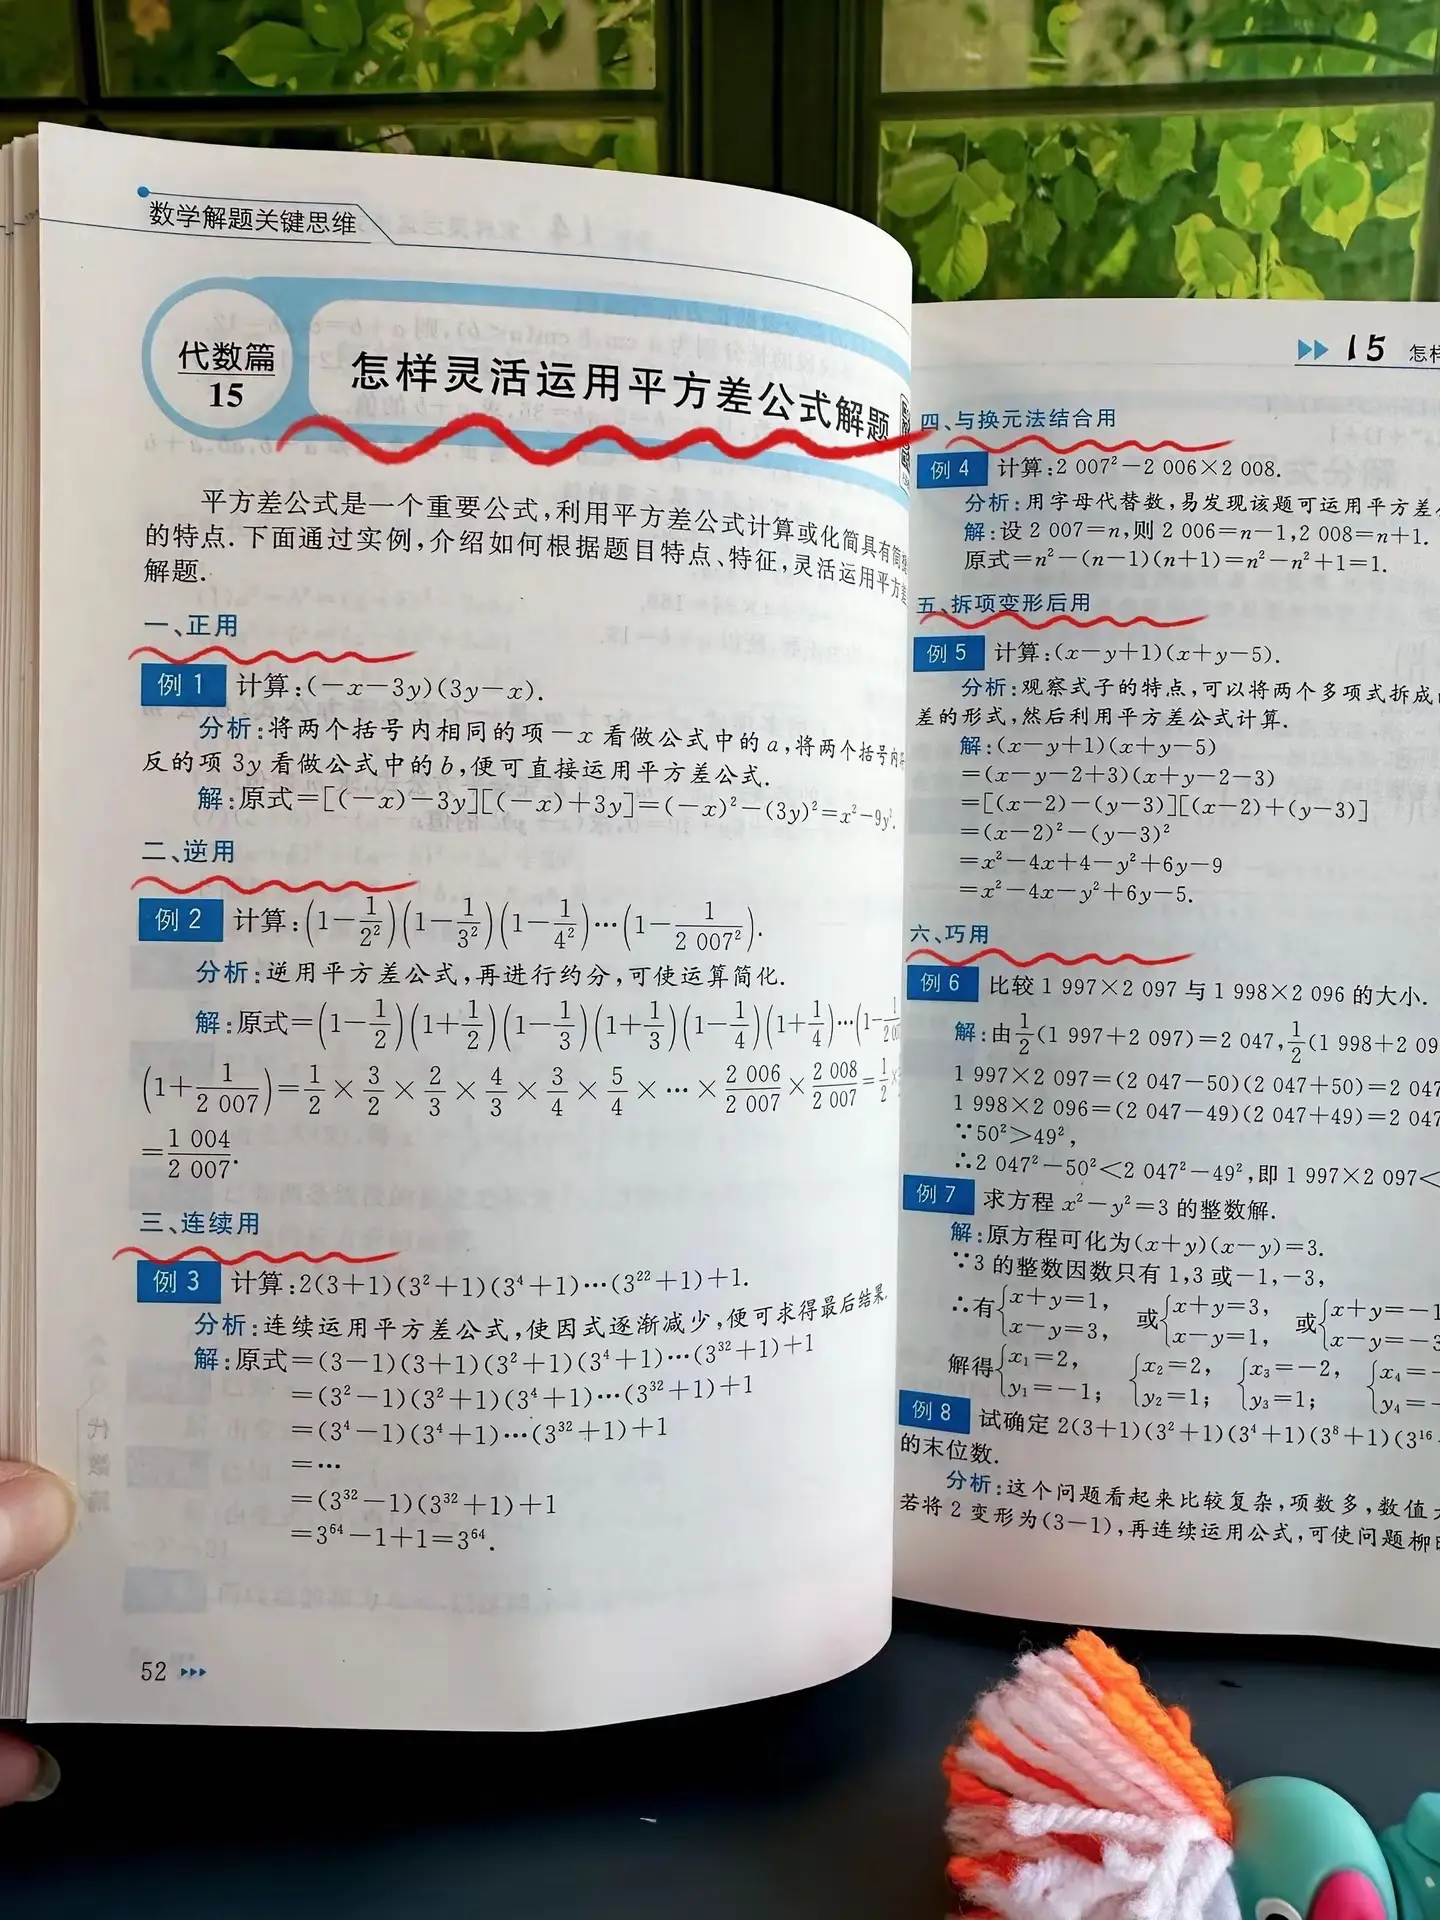 数学解题关键思维
代数篇
15
怎样灵活运用平方差公式解题
平方差公式是一个重要公式,利用平方差公式计算或化简具有简
的特点.下面通过实例,介绍如何根据题目特点、特征,灵活运用平方
解题.
一、正用
例 1 计算:(−x−3y)(3y−x).
分析:将两个括号内相同的项−x 看做公式中的a,将两个括号内
反的项 3y 看做公式中的b,便可直接运用平方差公式.
解:原式=[(−x)−3y][(−x)+3y]=(−x)²−(3y)²=x²−9y².
二、逆用
例 2 计算:(1−1/2²)(1−1/3²)(1−1/4²)⋯(1−1/2 007²).
分析:逆用平方差公式,再进行约分,可使运算简化.
解:原式=(1−1/2)(1+1/2)(1−1/3)(1+1/3)(1−1/4)(1+1/4)⋯(1−1/
(1+1/2 007)=1/2×3/2×2/3×4/3×3/4×5/4×⋯×2 006/2 007×2 008/2 007=1/2×
=1 004/2 007.
三、连续用
例 3 计算:2(3+1)(3²+1)(3⁴+1)⋯(3²²+1)+1.
分析:连续运用平方差公式,使因式逐渐减少,便可求得最后结果.
解:原式=(3−1)(3+1)(3²+1)(3⁴+1)⋯(3³²+1)+1
=(3²−1)(3²+1)(3⁴+1)⋯(3³²+1)+1
=(3⁴−1)(3⁴+1)⋯(3³²+1)+1
=⋯
=(3³²−1)(3³²+1)+1
=3⁶⁴−1+1=3⁶⁴.
52
15 怎样
四、与换元法结合用
例 4 计算:2 007²−2 006×2 008.
分析:用字母代替数,易发现该题可运用平方差
解:设 2 007=n,则 2 006=n−1,2 008=n+1.
原式=n²−(n−1)(n+1)=n²−n²+1=1.
五、拆项变形后用
例 5 计算:(x−y+1)(x+y−5).
分析:观察式子的特点,可以将两个多项式拆成
差的形式,然后利用平方差公式计算.
解:(x−y+1)(x+y−5)
=(x−y−2+3)(x+y−2−3)
=[(x−2)−(y−3)][(x−2)+(y−3)]
=(x−2)²−(y−3)²
=x²−4x+4−y²+6y−9
=x²−4x−y²+6y−5.
六、巧用
例 6 比较 1 997×2 097 与 1 998×2 096 的大小.
解:由1/2(1 997+2 097)=2 047,1/2(1 998+2 09
1 997×2 097=(2 047−50)(2 047+50)=2 047
1 998×2 096=(2 047−49)(2 047+49)=2 047
∵50²>49²,
∴2 047²−50²<2 047²−49²,即 1 997×2 097<
例 7 求方程 x²−y²=3 的整数解.
解:原方程可化为(x+y)(x−y)=3.
∵3 的整数因数只有 1,3 或−1,−3,
∴有{x+y=1, 或{x+y=3, 或{x+y=−1
x−y=3, x−y=1, x−y=−3
解得{x₁=2, {x₂=2, {x₃=−2, {x₄=−
y₁=−1; y₂=1; y₃=1; y₄=−
例 8 试确定 2(3+1)(3²+1)(3⁴+1)(3⁸+1)(3¹⁶
的末位数.
分析:这个问题看起来比较复杂,项数多,数值
若将 2 变形为(3−1),再连续运用公式,可使问题柳